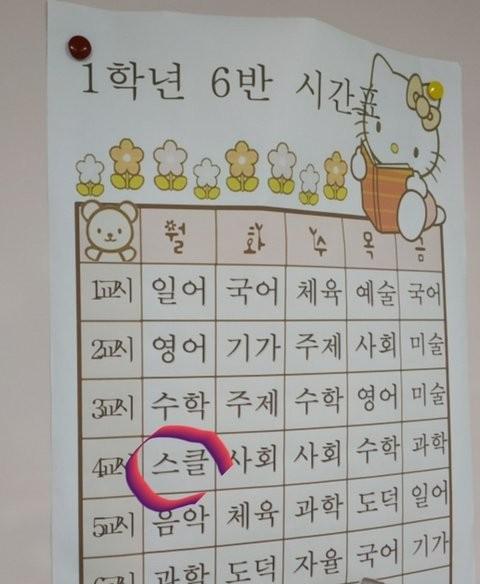 1학년 6반 시간표
월 화 수 목 금
1교시 일어 국어 체육 예술 국어
2교시 영어 기가 주제 사회 미술
3교시 수학 주제 수학 영어 미술
4교시 스클 사회 사회 수학 과학
5교시 음악 체육 과학 도덕 일어
과학 도덕 자율 국어 기가